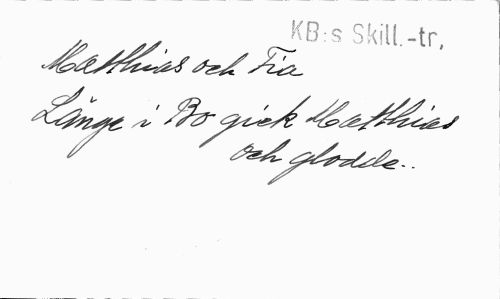 KB:s Skill.-tr,
Matthias och Fia
Länge i Bo gick Matthias
och glodde..